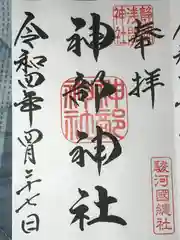 奉拝
靜岡
浅間
神社
神部神社
神部
神社
駿河國總社
令和四年四月二十七日